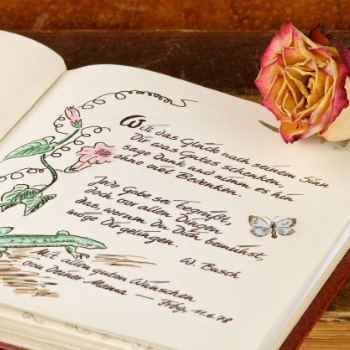 Will das Glück nach seinem Sinn
Dir was Gutes schenken,
sage Dank und nimm es hin
ohne viel Bedenken.
Jede Gabe sei begrüßt,
doch vor allen Dingen
das, warum Du Dich bemühst,
möge Dir gelingen.
W. Busch
Mit den guten Wünschen
von Deiner Mama — Hbg. 11.6.78